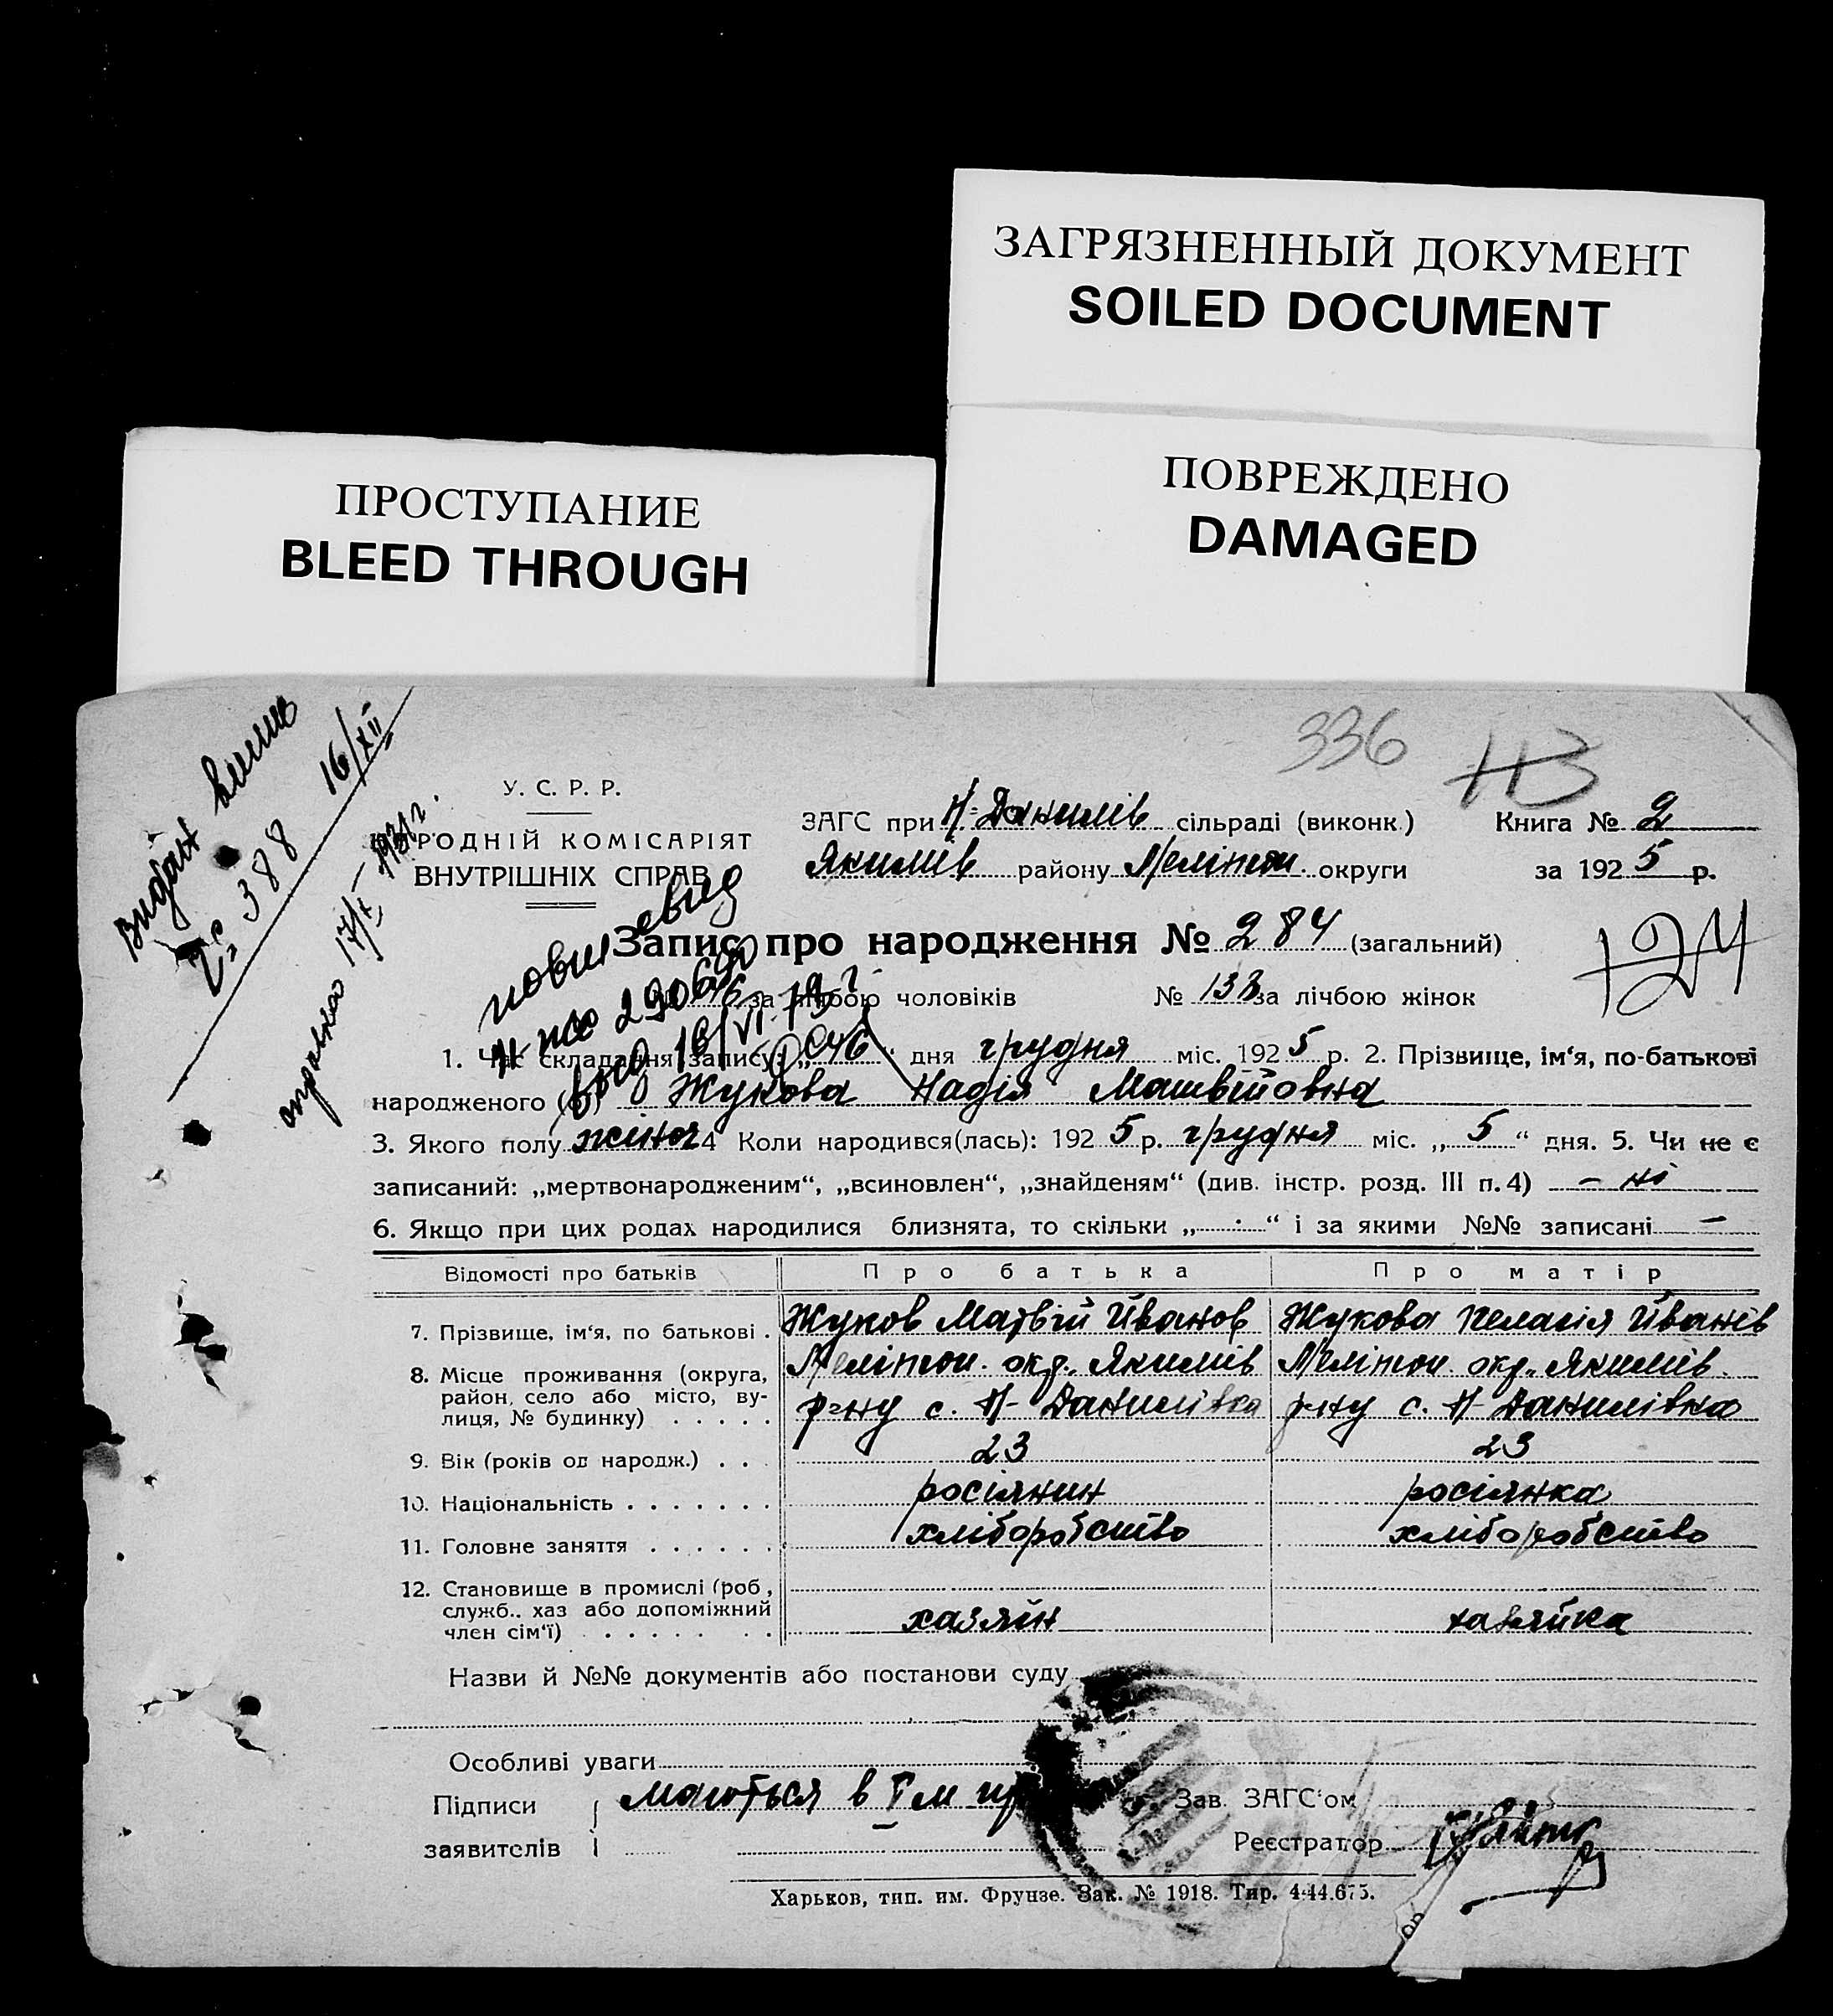 ЗАГРЯЗНЕННЫЙ ДОКУМЕНТ
SOILED DOCUMENT
ПРОСТУПАНИЕ
BLEED THROUGH
ПОВРЕЖДЕНО
DAMAGED
336 113
видан
№ 388 16/XII
справка 17/I-1931г.
У. С. Р. Р.
РОДНІЙ КОМІСАРІЯТ
ВНУТРІШНІХ СПРАВ
ЗАГС при Н-Данилів сільраді (виконк.) Книга № 2
Якимів району Мелітоп. округи за 1925 р.
124
Запис про народження № 284 (загальний)
146 за лічбою чоловіків № 138 за лічбою жінок
1. Час складання запису: „ “ дня грудня міс. 1925 р. 2. Прізвище, ім‘я, по-батькові
народженого (ої) Жукова Надія Матвійовна
3. Якого полу жіноч 4 Коли народився(лась): 1925 р. грудня міс. „ 5 “ дня. 5. Чи не є
записаний: „мертвонародженим“, „всиновлен“, „знайденям“ (див. інстр. розд. III п. 4) - ні
6. Якщо при цих родах народилися близнята, то скільки „ “ і за якими №№ записані —
Відомості про батьків Про батька Про матір
7. Прізвище, ім‘я, по батькові . Жуков Матвій Іванов Жукова Пелагія Іванів
8. Місце проживання (округа, район, село або місто, вулиця, № будинку) . . . . . Мелітоп. окр. Якимів Мелітоп. окр. Якимів.
р-ну с. Н-Данилівка р-ну с. Н-Данилівка
9. Вік (років од народж.) . . . 23 23
10. Національність . . . . . . . росіянин росіянка
11. Головне заняття . . . . . . хліборобство хліборобство
12. Становище в промислі (роб., служб., хаз або допоміжний член сім‘ї) . . . . . . . хазяїн хазяйка
Назви й №№ документів або постанови суду
Особливі уваги
Підписи маються в І-м Зав. ЗАГС‘ом
заявителів Реєстратор
Харьков, тип. им. Фрунзе. Зак. № 1918. Тир. 444.675.